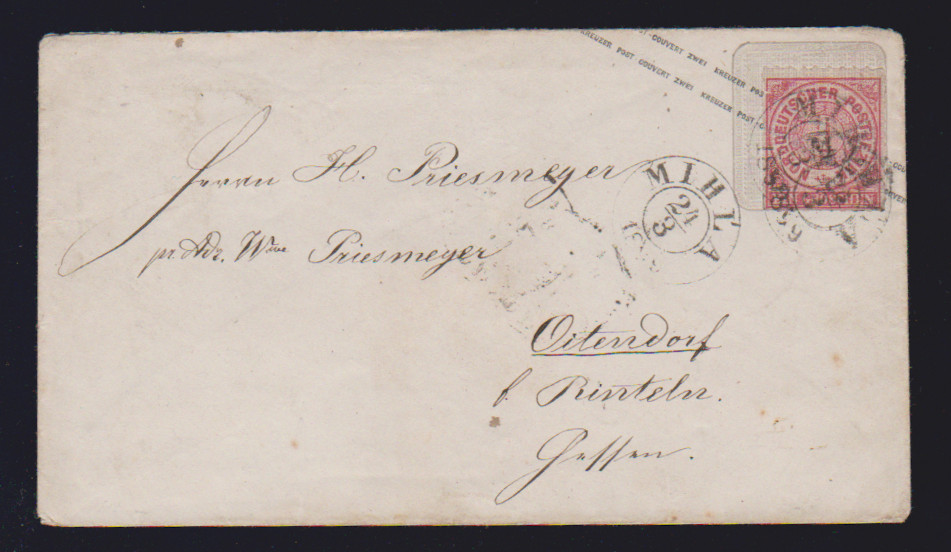 KREUZER POST COUVERT ZWEI KREUZER POS
POST-COUVERT ZWEI KREUZER POS
NORDDEUTSCHER POSTBEZIRK
MIHLA
24
3
Herrn H. Priesmeyer
pr. Adr. Wwe Priesmeyer
Oitendorf
b. Rinteln.
Hessen.